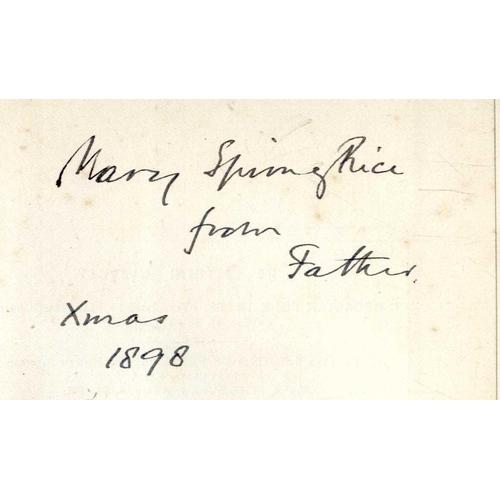 Mary Spring Rice
from
Father.
Xmas
1898